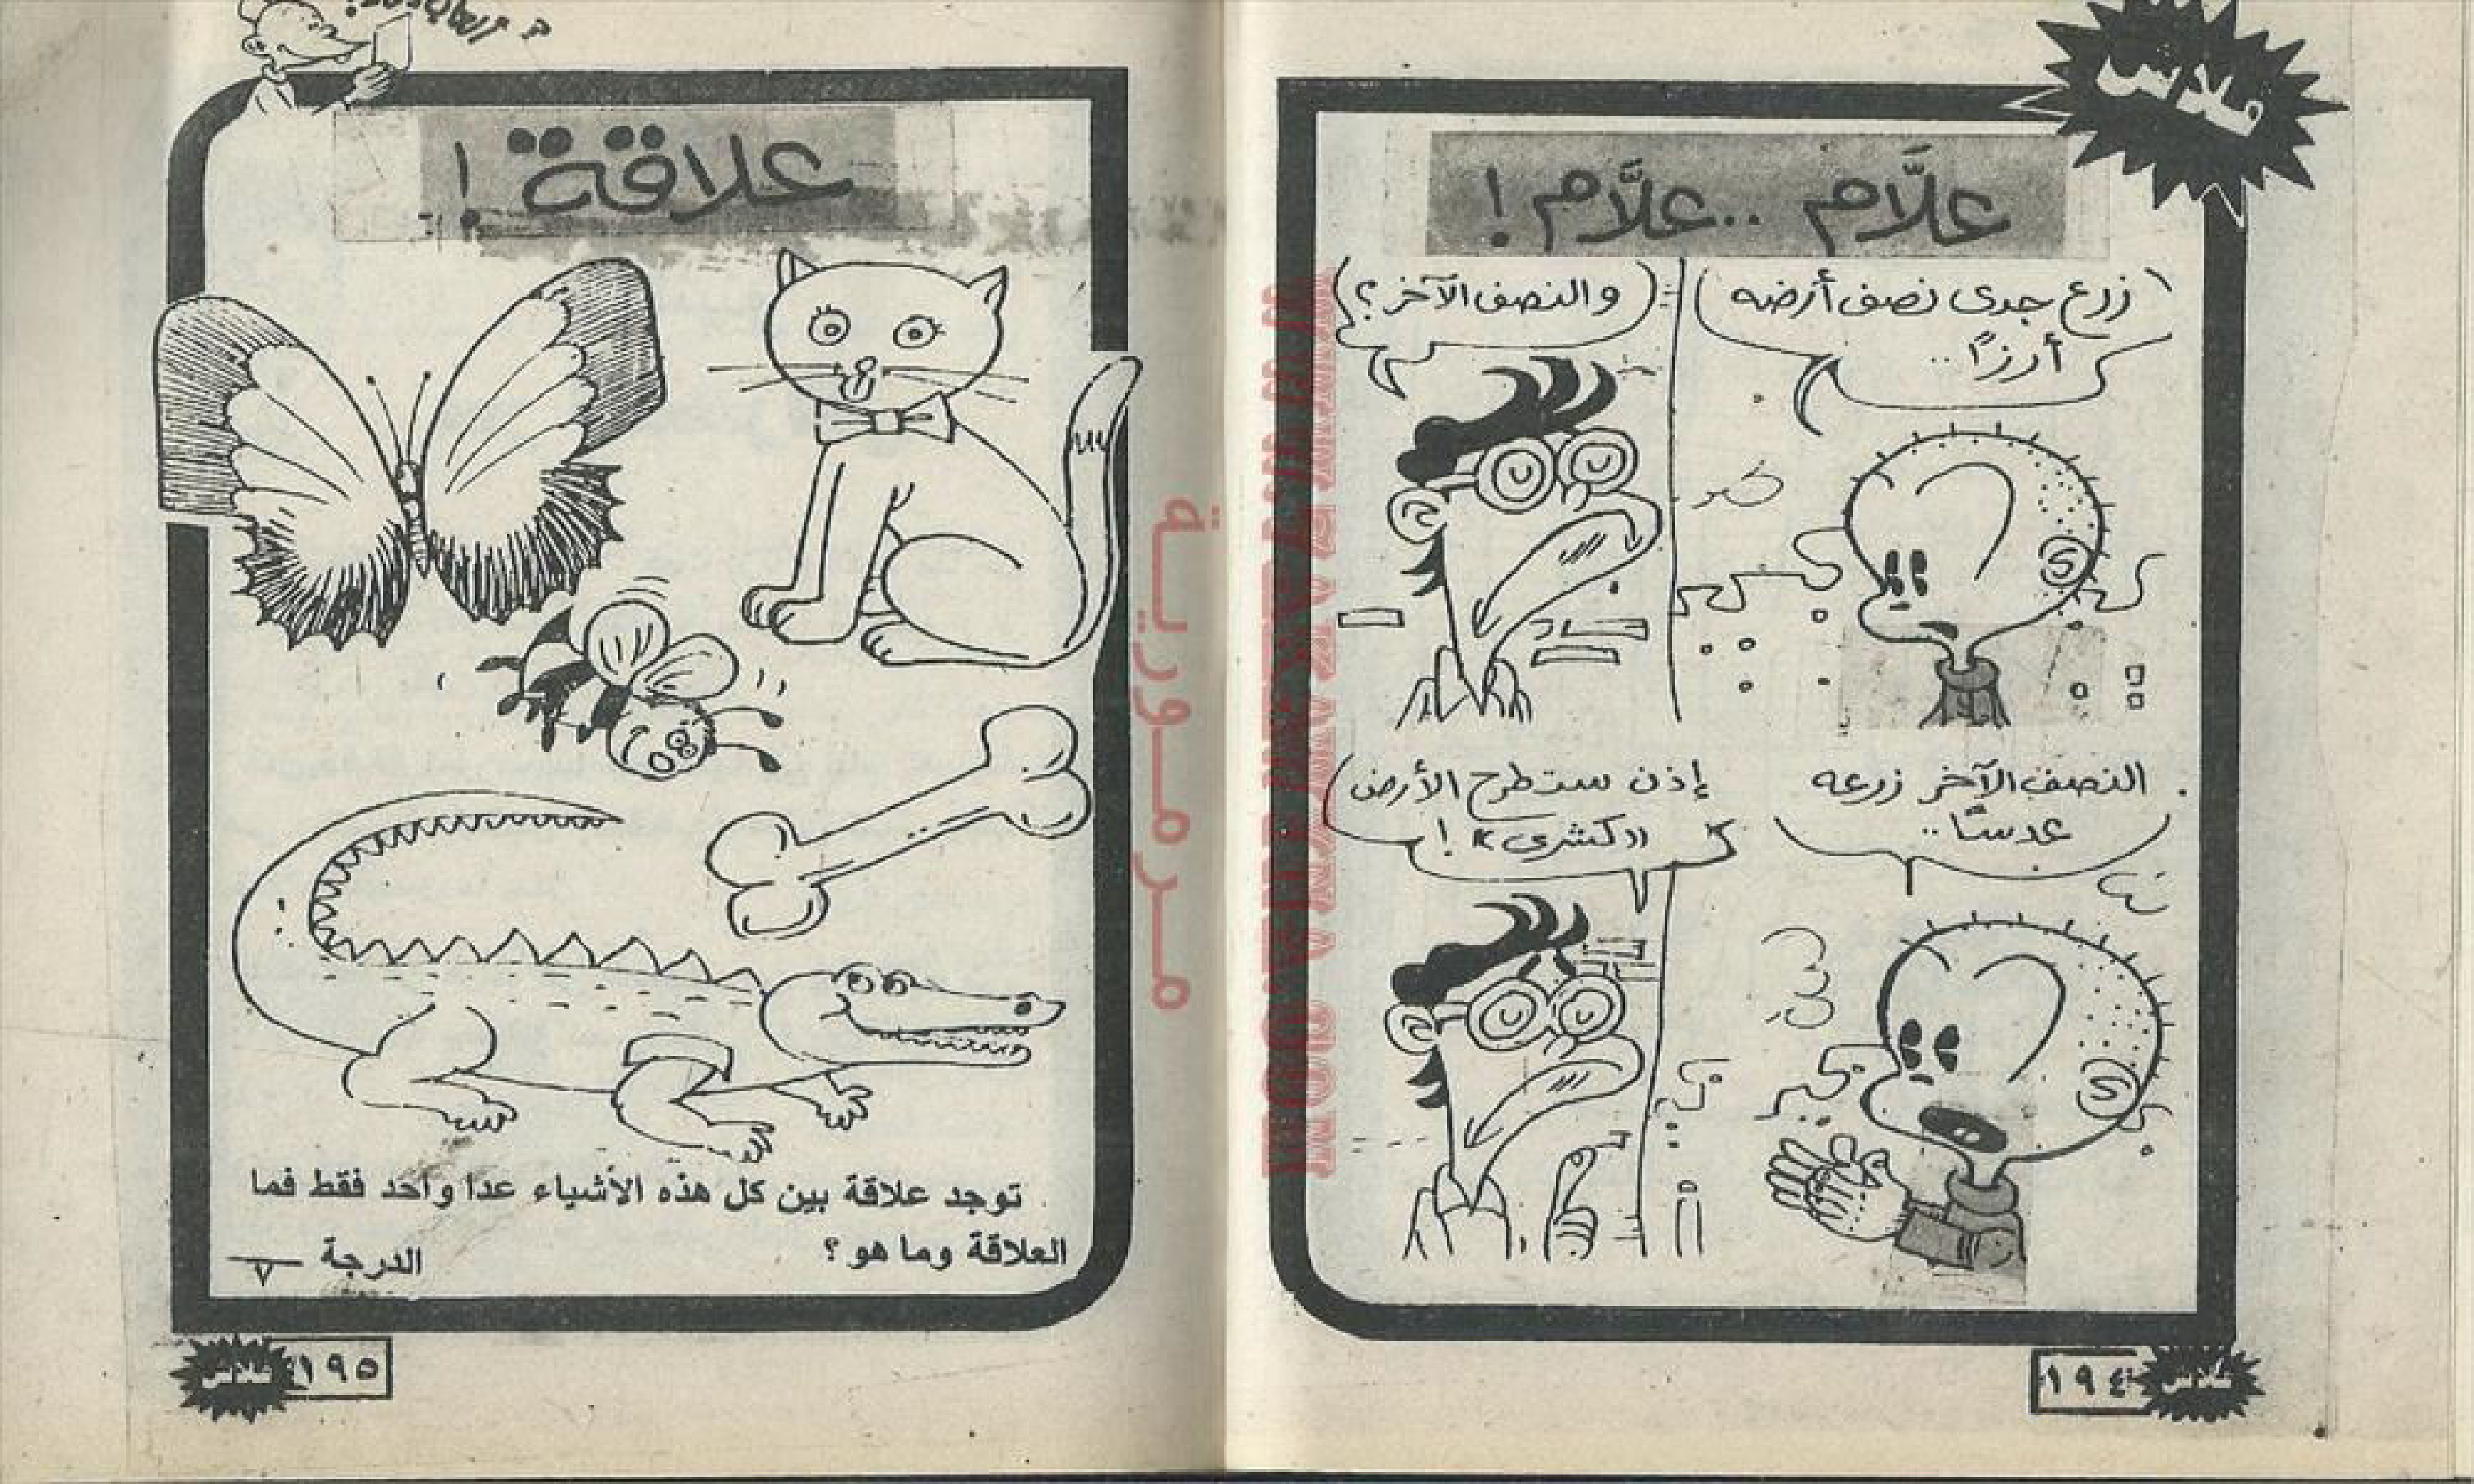 فلاش
علَّام .. علَّام !
زرع جدى نصف أرضه
أرزًا ..
و النصف الآخر ؟
النصف الآخر زرعه
عدسًا ..
إذن ستطرح الأرض
«كشرى» !
١٩٤
فلاش
علاقة !
توجد علاقة بين كل هذه الأشياء عدا واحد فقط فما
العلاقة وما هو ؟
الدرجة ٧
١٩٥
فلاش
مرمورية